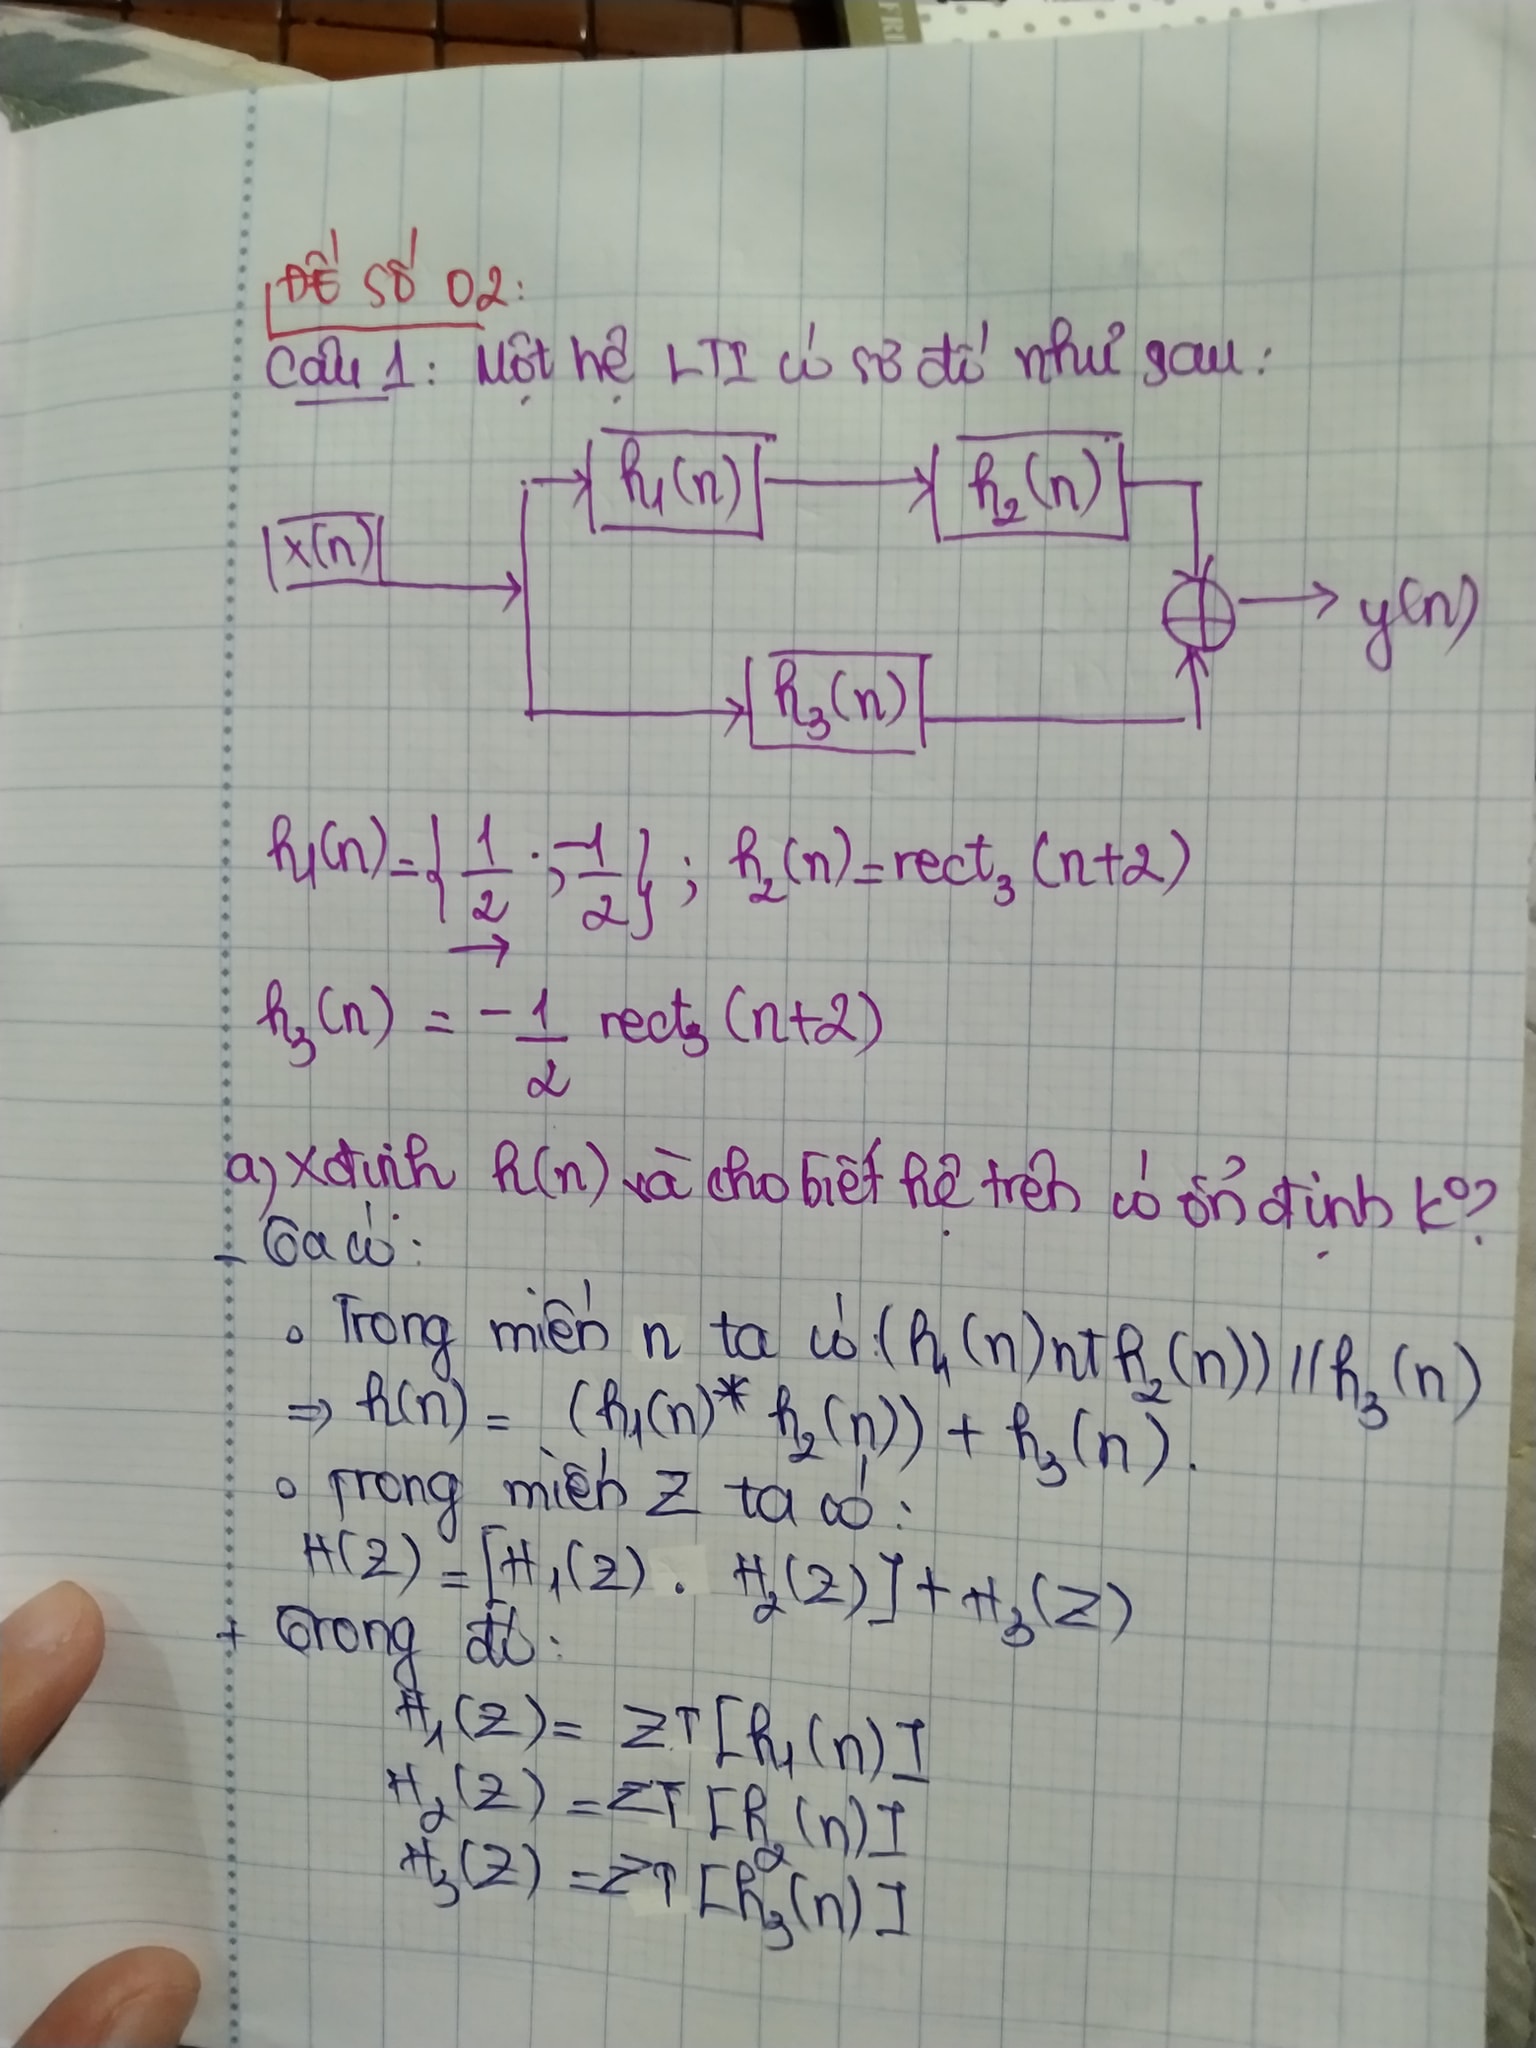 ĐỀ SỐ 02:
Câu 1: Một hệ LTI có sơ đồ như sau:
h₁(n) h₂(n)
x(n)
y(n)
h₃(n)
h₁(n)={1/2; -1/2}; h₂(n)=rect₃(n+2)
h₃(n) = -1/2 rect₃(n+2)
a) Xđịnh h(n) và cho biết hệ trên có ổn định k°?
- Ta có:
∘ Trong miền n ta có: (h₁(n) nt h₂(n)) // h₃(n)
⇒ h(n) = (h₁(n) * h₂(n)) + h₃(n).
∘ Trong miền Z ta có:
H(Z) = [H₁(Z) . H₂(Z)] + H₃(Z)
+ Trong đó:
H₁(Z) = ZT[h₁(n)]
H₂(Z) = ZT[h₂(n)]
H₃(Z) = ZT[h₃(n)]